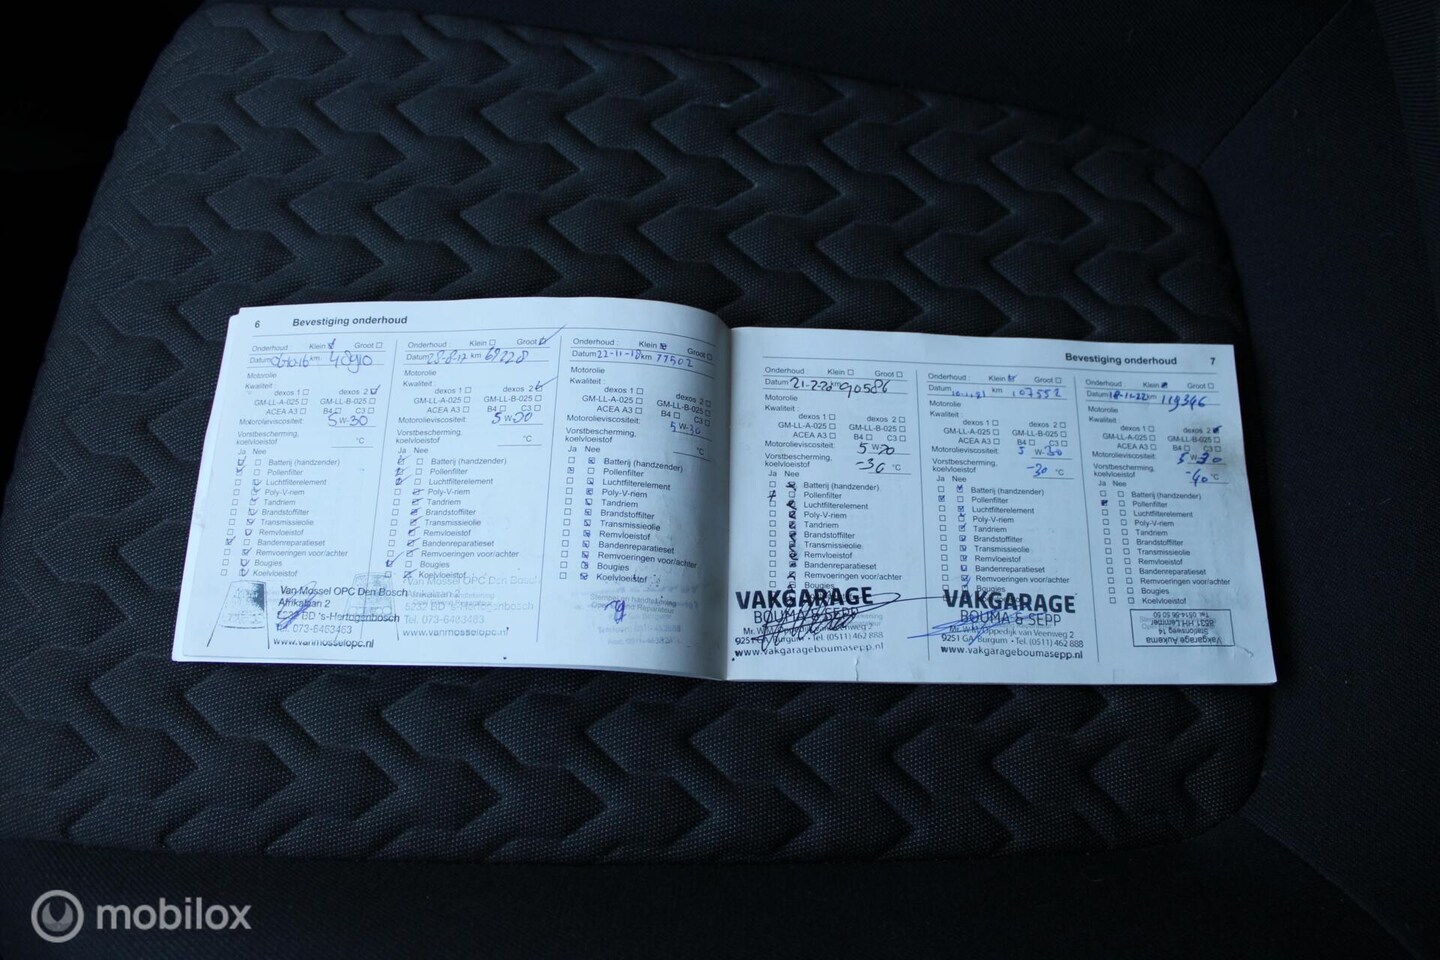 6 Bevestiging onderhoud
Onderhoud : Klein Groot
Datum km 48910
Motorolie
Kwaliteit :
dexos 1 dexos 2
GM-LL-A-025 GM-LL-B-025
ACEA A3 B4 C3
Motorolieviscositeit: 5 W-30
Vorstbescherming, koelvloeistof °C
Ja Nee
Batterij (handzender)
Pollenfilter
Luchtfilterelement
Poly-V-riem
Tandriem
Brandstoffilter
Transmissieolie
Remvloeistof
Bandenreparatieset
Remvoeringen voor/achter
Bougies
Koelvloeistof
Van Mossel OPC Den Bosch
Afrikalaan 2
BD 's-Hertogenbosch
Tel. 073-6483483
www.vanmosselopc.nl
Onderhoud : Klein Groot
Datum km
Motorolie
Kwaliteit :
dexos 1 dexos 2
GM-LL-A-025 GM-LL-B-025
ACEA A3 B4 C3
Motorolieviscositeit: 5 W-30
Vorstbescherming, koelvloeistof °C
Ja Nee
Batterij (handzender)
Pollenfilter
Luchtfilterelement
Poly-V-riem
Tandriem
Brandstoffilter
Transmissieolie
Remvloeistof
Bandenreparatieset
Remvoeringen voor/achter
Bougies
Koelvloeistof
Van Mossel OPC Den Bosch
Afrikalaan 2
5232 BD 's-Hertogenbosch
Tel. 073-6483483
www.vanmosselopc.nl
Onderhoud : Klein Groot
Datum 22-11-18 km 77502
Motorolie
Kwaliteit :
dexos 1 dexos 2
GM-LL-A-025 GM-LL-B-025
ACEA A3 B4 C3
Motorolieviscositeit: 5 W-30
Vorstbescherming, koelvloeistof °C
Ja Nee
Batterij (handzender)
Pollenfilter
Luchtfilterelement
Poly-V-riem
Tandriem
Brandstoffilter
Transmissieolie
Remvloeistof
Bandenreparatieset
Remvoeringen voor/achter
Bougies
Koelvloeistof
Bevestiging onderhoud 7
Onderhoud : Klein Groot
Datum 21-2-20 km 90586
Motorolie
Kwaliteit :
dexos 1 dexos 2
GM-LL-A-025 GM-LL-B-025
ACEA A3 B4 C3
Motorolieviscositeit: 5 W-30
Vorstbescherming, koelvloeistof -36 °C
Ja Nee
Batterij (handzender)
Pollenfilter
Luchtfilterelement
Poly-V-riem
Tandriem
Brandstoffilter
Transmissieolie
Remvloeistof
Bandenreparatieset
Remvoeringen voor/achter
Bougies
VAKGARAGE
BOUMA & SEPP
Mr. W.M. Oppedijk van Veenweg 2
9251 GA Burgum • Tel. (0511) 462 888
www.vakgarageboumasepp.nl
Onderhoud : Klein Groot
Datum km 107552
Motorolie
Kwaliteit :
dexos 1 dexos 2
GM-LL-A-025 GM-LL-B-025
ACEA A3 B4 C3
Motorolieviscositeit: 5 W-30
Vorstbescherming, koelvloeistof -30 °C
Ja Nee
Batterij (handzender)
Pollenfilter
Luchtfilterelement
Poly-V-riem
Tandriem
Brandstoffilter
Transmissieolie
Remvloeistof
Bandenreparatieset
Remvoeringen voor/achter
Bougies
VAKGARAGE
BOUMA & SEPP
Mr. W.M. Oppedijk van Veenweg 2
9251 GA Burgum • Tel. (0511) 462 888
www.vakgarageboumasepp.nl
Onderhoud : Klein Groot
Datum 18-11-22 km 119346
Motorolie
Kwaliteit :
dexos 1 dexos 2
GM-LL-A-025 GM-LL-B-025
ACEA A3 B4 C3
Motorolieviscositeit: 5 W-30
Vorstbescherming, koelvloeistof -40 °C
Ja Nee
Batterij (handzender)
Pollenfilter
Luchtfilterelement
Poly-V-riem
Tandriem
Brandstoffilter
Transmissieolie
Remvloeistof
Bandenreparatieset
Remvoeringen voor/achter
Bougies
Koelvloeistof
Vakgarage Aukema
Stationsweg 14
8531 HH Lemmer
mobilox